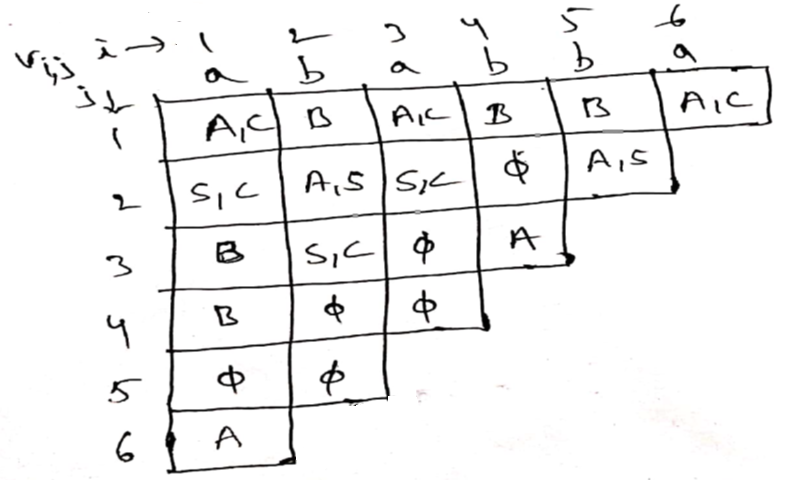 Vi,j i → 1 2 3 4 5 6
j↓ a b a b b a
1 A,C B A,C B B A,C
2 S,C A,S S,C ϕ A,S
3 B S,C ϕ A
4 B ϕ ϕ
5 ϕ ϕ
6 A